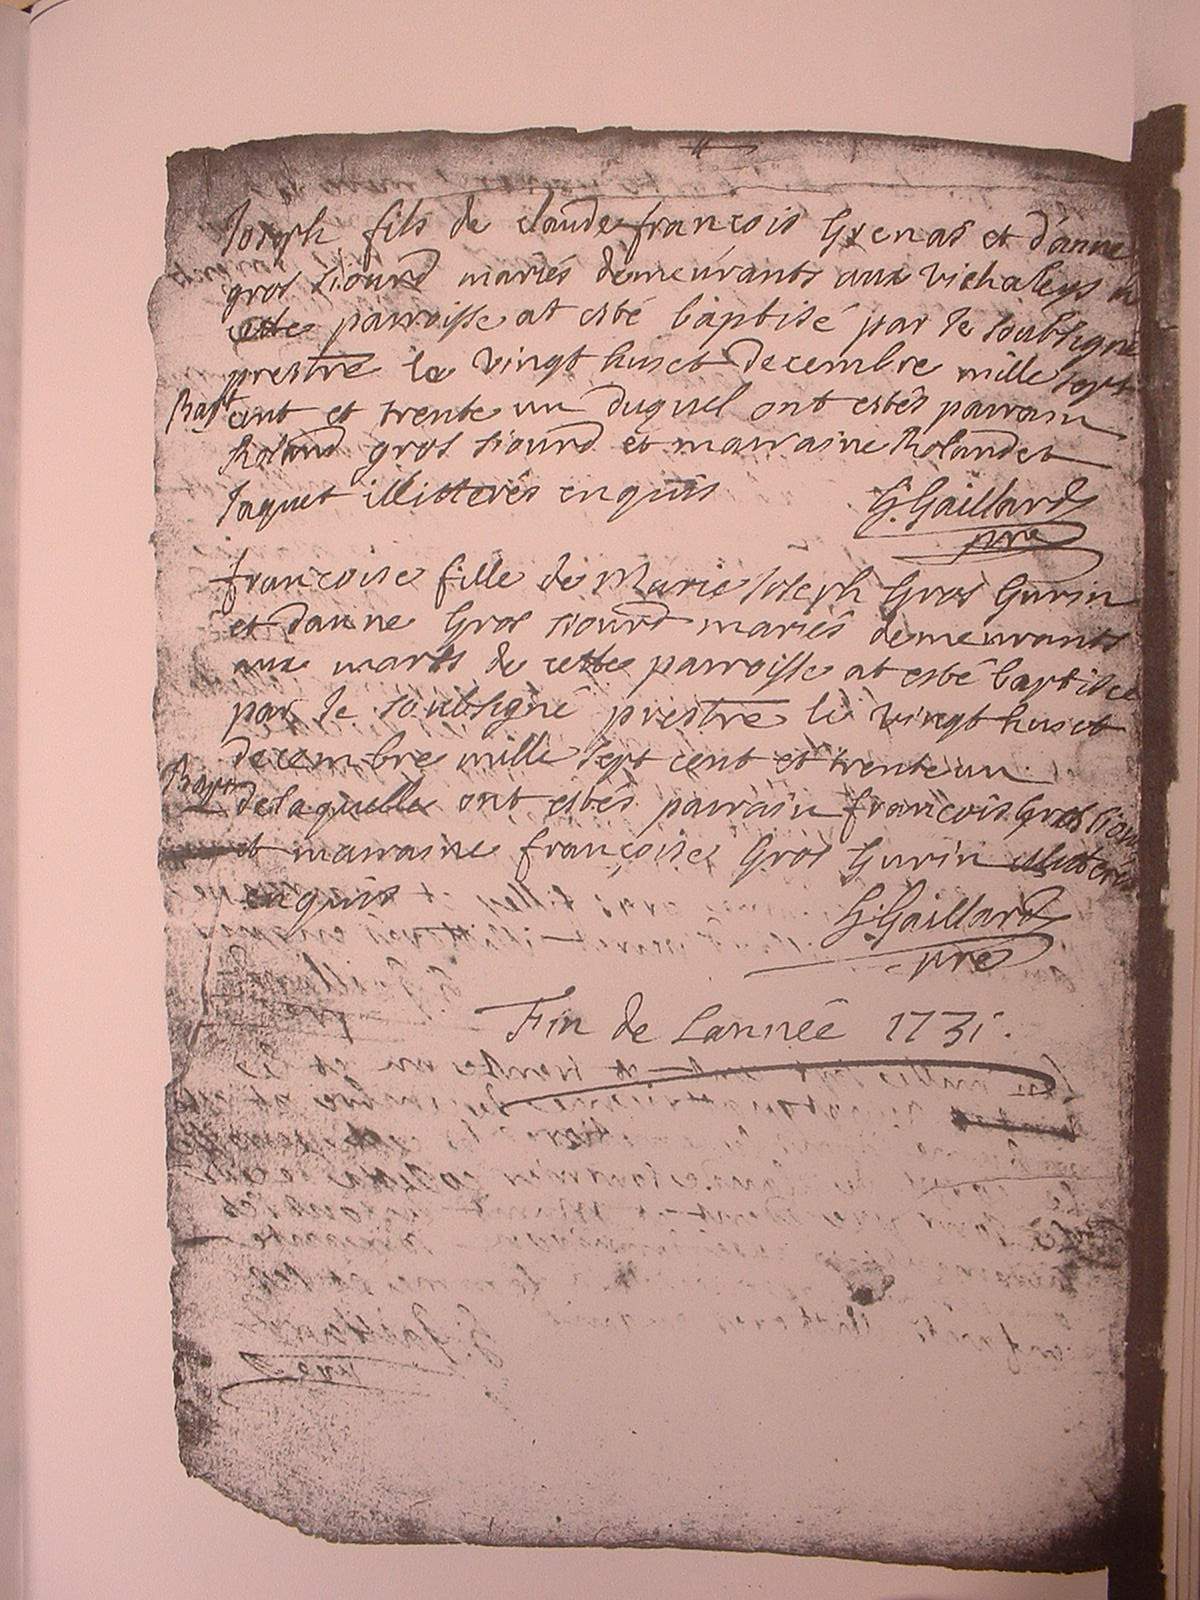 Joseph fils de claude françois Grenas et d'anne
gros siourd mariés demeurants aux Vichaleys
cette parroisse at esté baptisé par le soubsigné
prestre le vingt huict decembre mille sept
Bapt cent et trente un duquel ont estés parrain
Roland gros siourd et marraine Rolandet
Jaquet illitterés enquis
G: Gaillard
pre
françoise fille de Marie Joseph Gros Gurin
et d'anne Gros siourd mariés demeurants
aux marts de cette parroisse at esté baptisée
par le soubsigné prestre le vingt huict
decembre mille sept cent et trente un
Bapt de laquelle ont estés parrain françois Gros siour
et marraine françoise Gros Gurin illitterés
enquis
G: Gaillard
pre
Fin de Lannée 1731.